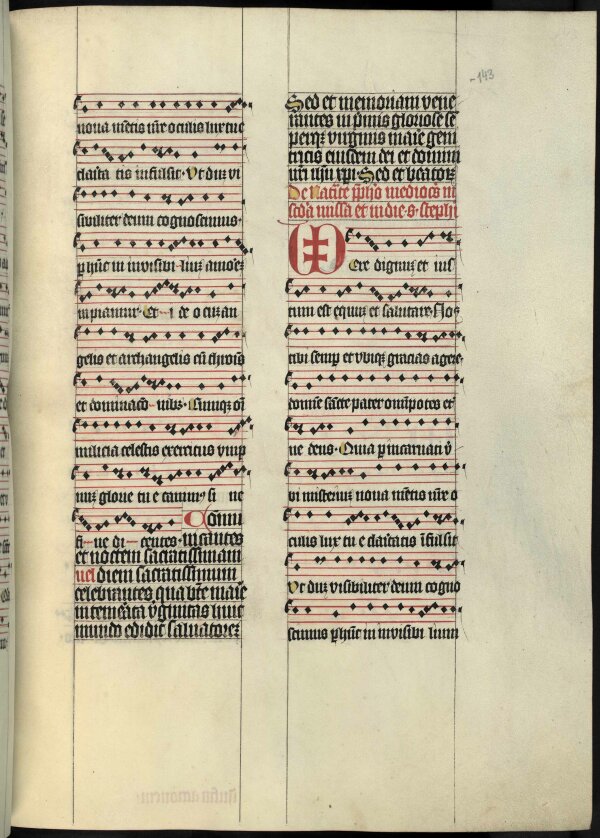 143
noua mētis nr̄e oculis lux tue
claita tis infulsit · Vt dū vi
sibiliter deum cognoscimus ·
p hūc in invisibi lium amorē
rapiamur · Et i de o cū an
gelis et archangelis cū thronis
et dominacō nibꝯ · Cūmqꝫ oī
milicia celestis exercitus
glorie tu e canimꝯ si ne
Cōmu
fi ne di centes · infantes
et noctem sacratissimam
uel diem sacratissimum
celebrantes qua bt̄e marie
intemerata vginitas huic
mundo edidit saluatorē
Sed et memoriam vene
rantes in pīmis gloriose sē
perqꝫ virginis marie geni
tricis eiusdem dei et domini
nr̄i ihu xpi · Sed et beatorꝫ
scd̄a missa et in die · s · stephi
Vere dignū et ius
tum est equū et salutare · Nos
tibi semp et vbiqꝫ gracias agere ·
domīe sancte pater omīpotēs et
ne deus · Quia p incarnati v̄
bi misteriū noua mētis nr̄e o
culis lux tu e claitatis īfulsit
Vt dū visibiliter deum cogno
scimus p hūc in invisibi lium